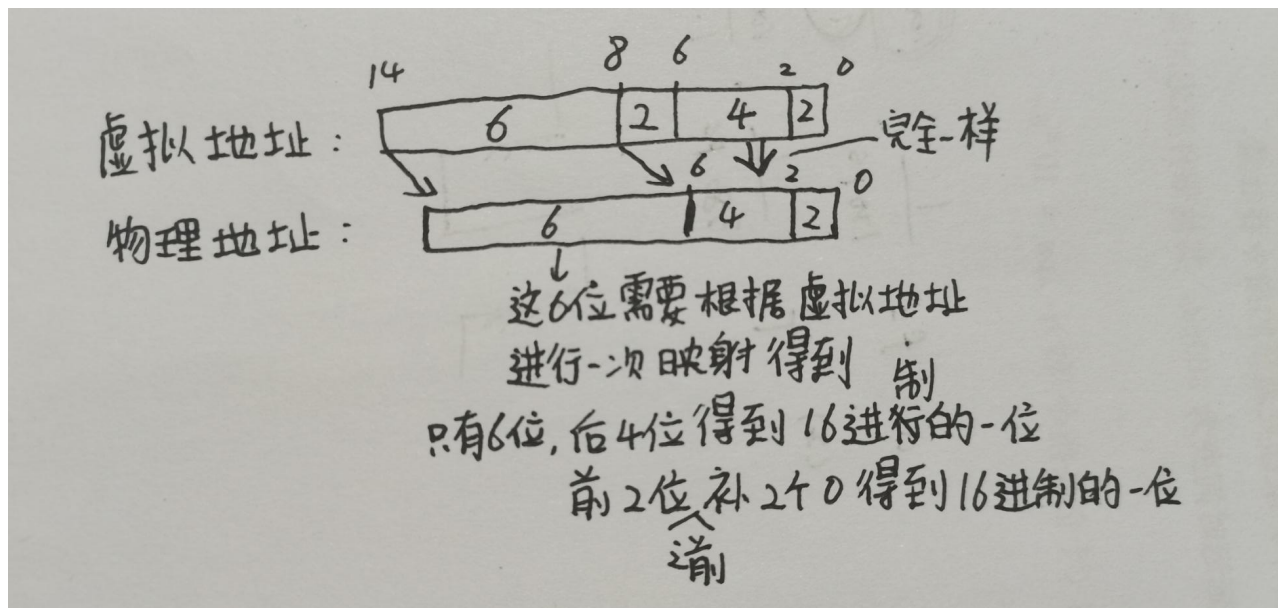 14 8 6 2 0
虚拟地址: 6 2 4 2 完全一样
6 2 0
物理地址: 6 4 2
这6位需要根据虚拟地址
进行一次映射得到
制
只有6位,后4位得到16进行的一位
前2位补2个0得到16进制的一位
之前